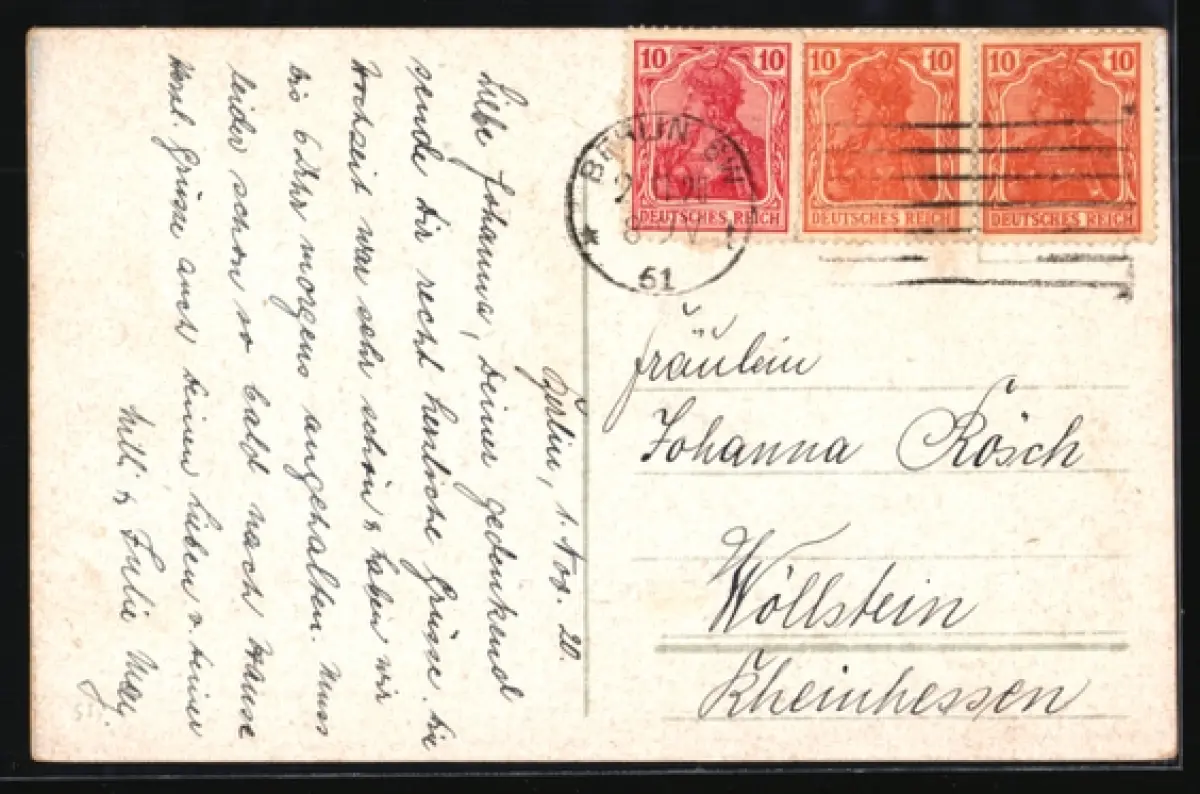 Berlin, 1. Nov. 20.
Liebe Johanna, deiner gedenkend
sende dir recht herzliche Grüsse. Die
Hochzeit war sehr schön & haben wir
bis 6 Uhr morgens angehalten. Muss
leider schon so bald nach Hause
Herzl. Grüsse auch deinen Lieben v. deiner
Milli & Julie May.
10 10
DEUTSCHES REICH
10 10
DEUTSCHES REICH
10 10
DEUTSCHES REICH
BERLIN SW
51
Fräulein
Johanna Rösch
Wöllstein
Rheinhessen